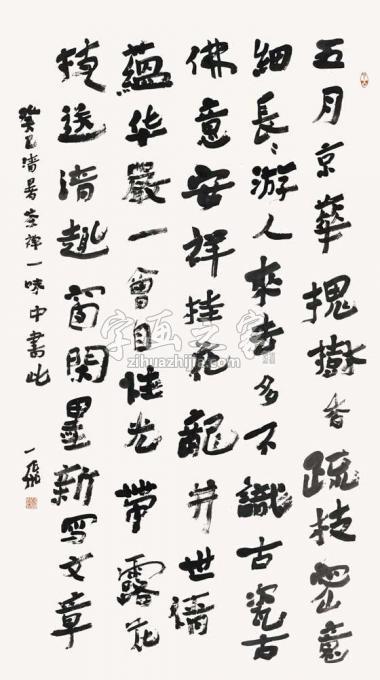 五月京華槐樹香疏枝密意
細長〻游人來去多不識古瓷古
佛意安祥挂花龍井世
蘊华嚴一會自性光帶露花
枝送清趣窗閑墨新写文章
癸巳清暑茶禅一味中書此
一
字画之家
zihuazhijia.com